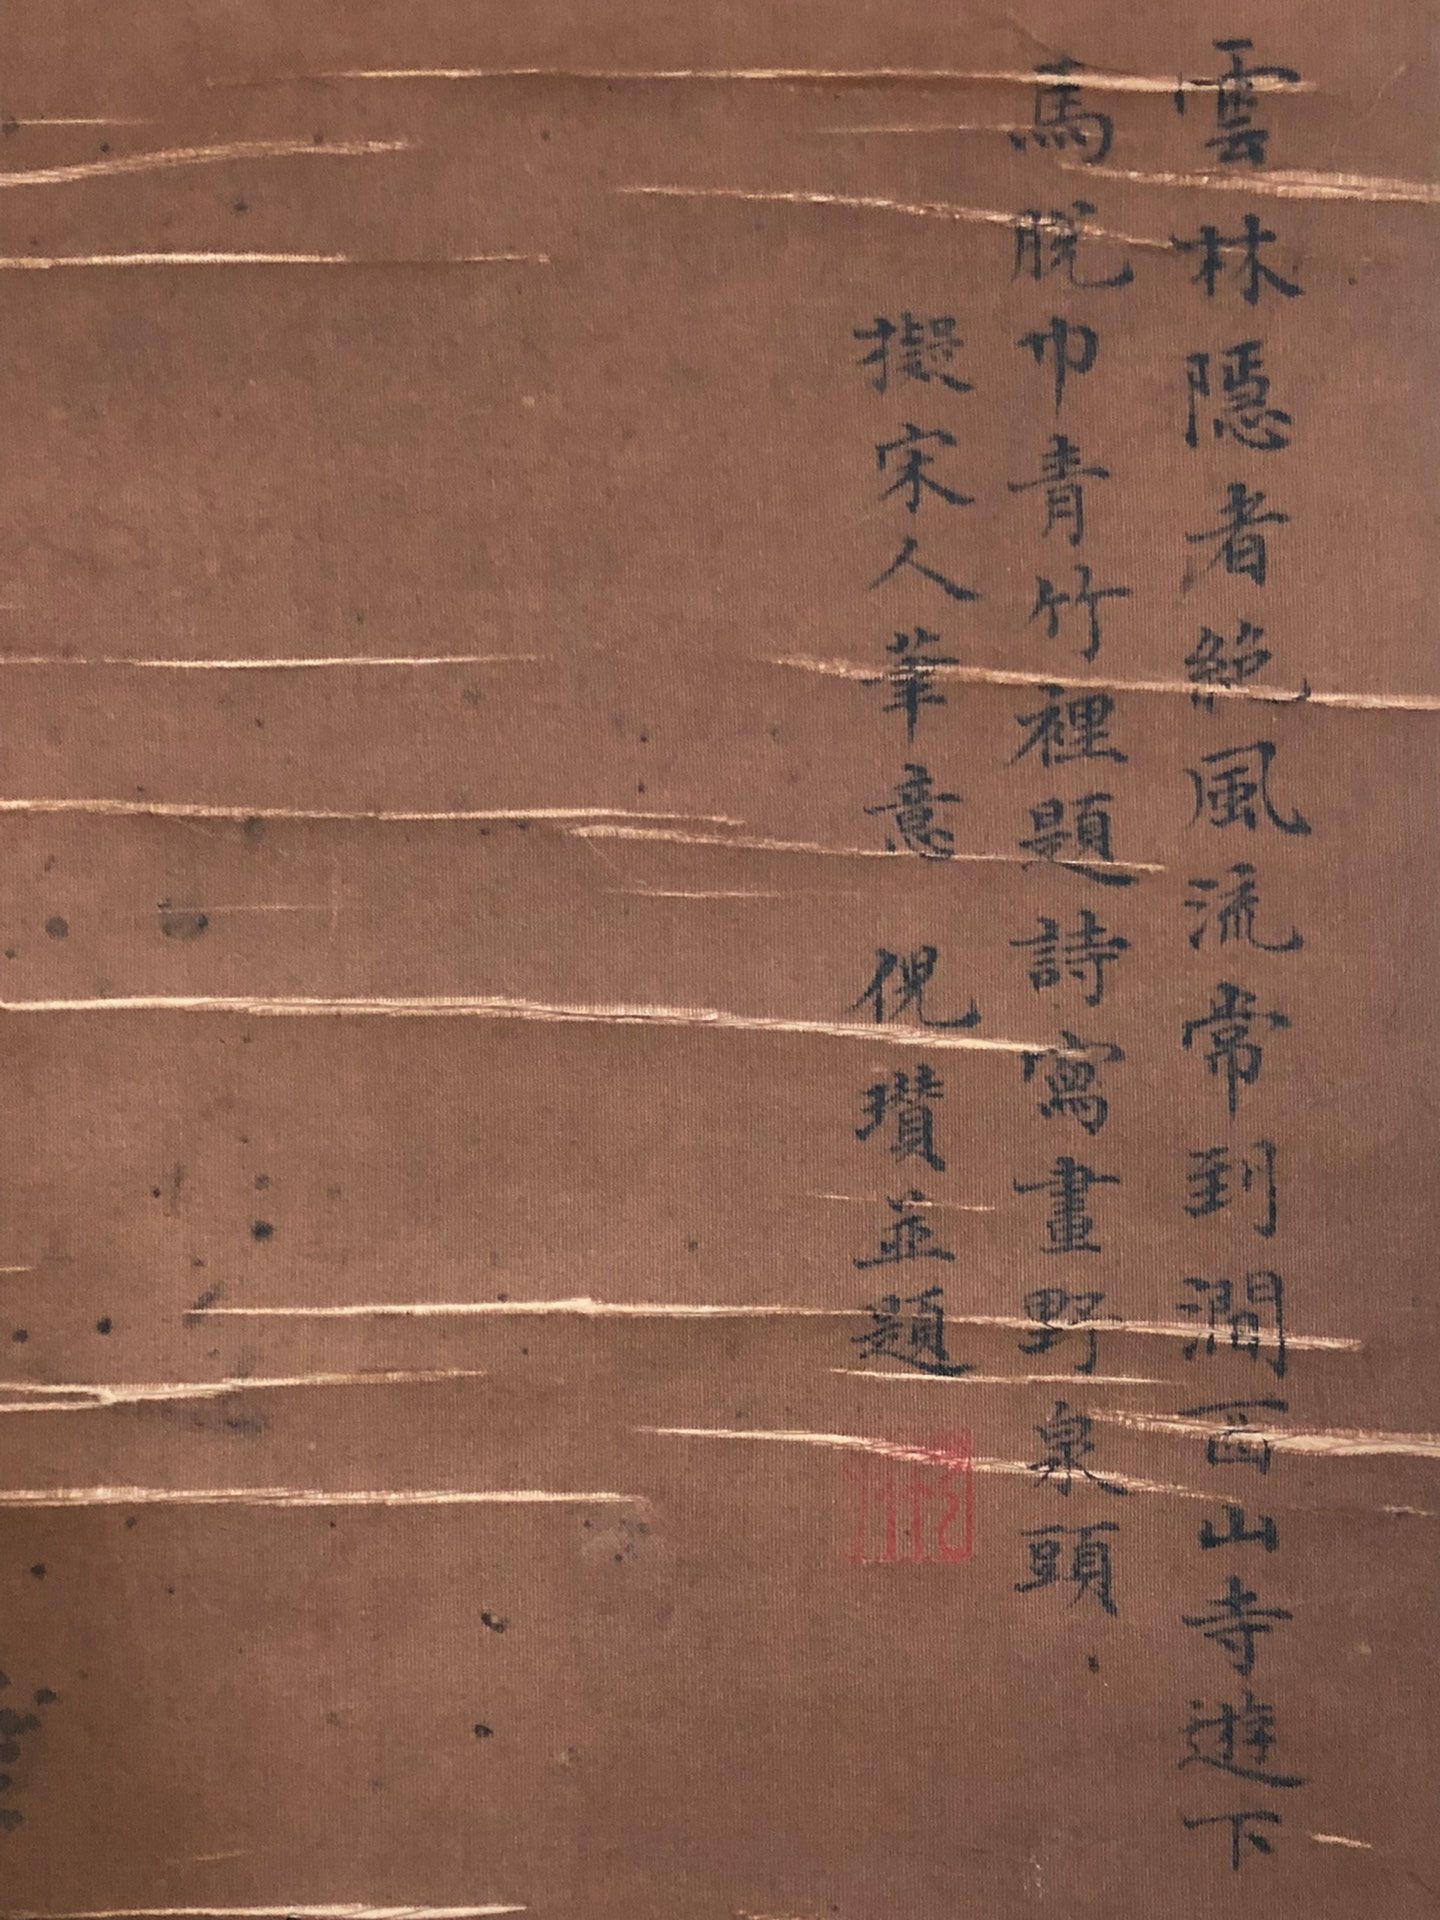 雲林隱者絕風流常到澗西山寺遊下
馬脫巾青竹裡題詩寫畫野泉頭
擬宋人筆意 倪瓚並題